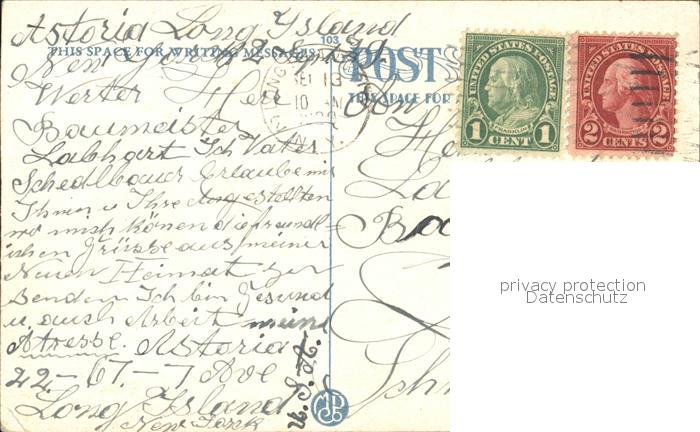 Astoria Long Island
103
THIS SPACE FOR WRITING MESSAGES
POST
THIS SPACE FOR
New York
Werter Herr
Baumeister
Labhart Ich Vater
Schedlbauer Erlaube mir
Ihnen u Ihre Angestellten
wo mich könen die freundl=
ichen Grüsse aus meiner
Neuen Heimat zu
senden Ich bin Gesund
u. auch Arbeit meine
Atresse. Astoria
22-67-7 Ave
Long Island
New York
U.S.A.
SEP 13
10 AM
N.Y.
UNITED STATES POSTAGE
FRANKLIN
1 CENT 1
UNITED STATES POSTAGE
WASHINGTON
2 CENTS 2
privacy protection
Datenschutz